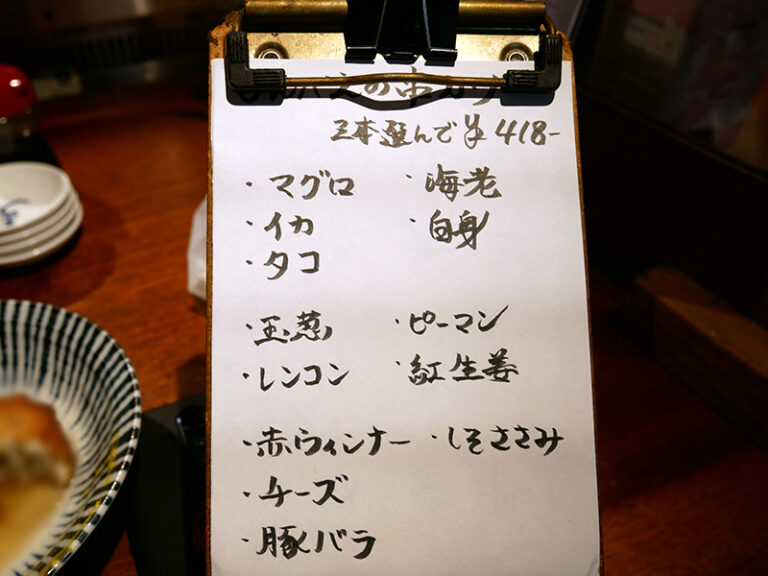 の串カツ
三本選んで¥418-
・マグロ ・海老
・イカ ・白身
・タコ
・玉葱 ・ピーマン
・レンコン ・紅生姜
・赤ウィンナー ・しそささみ
・チーズ
・豚バラ